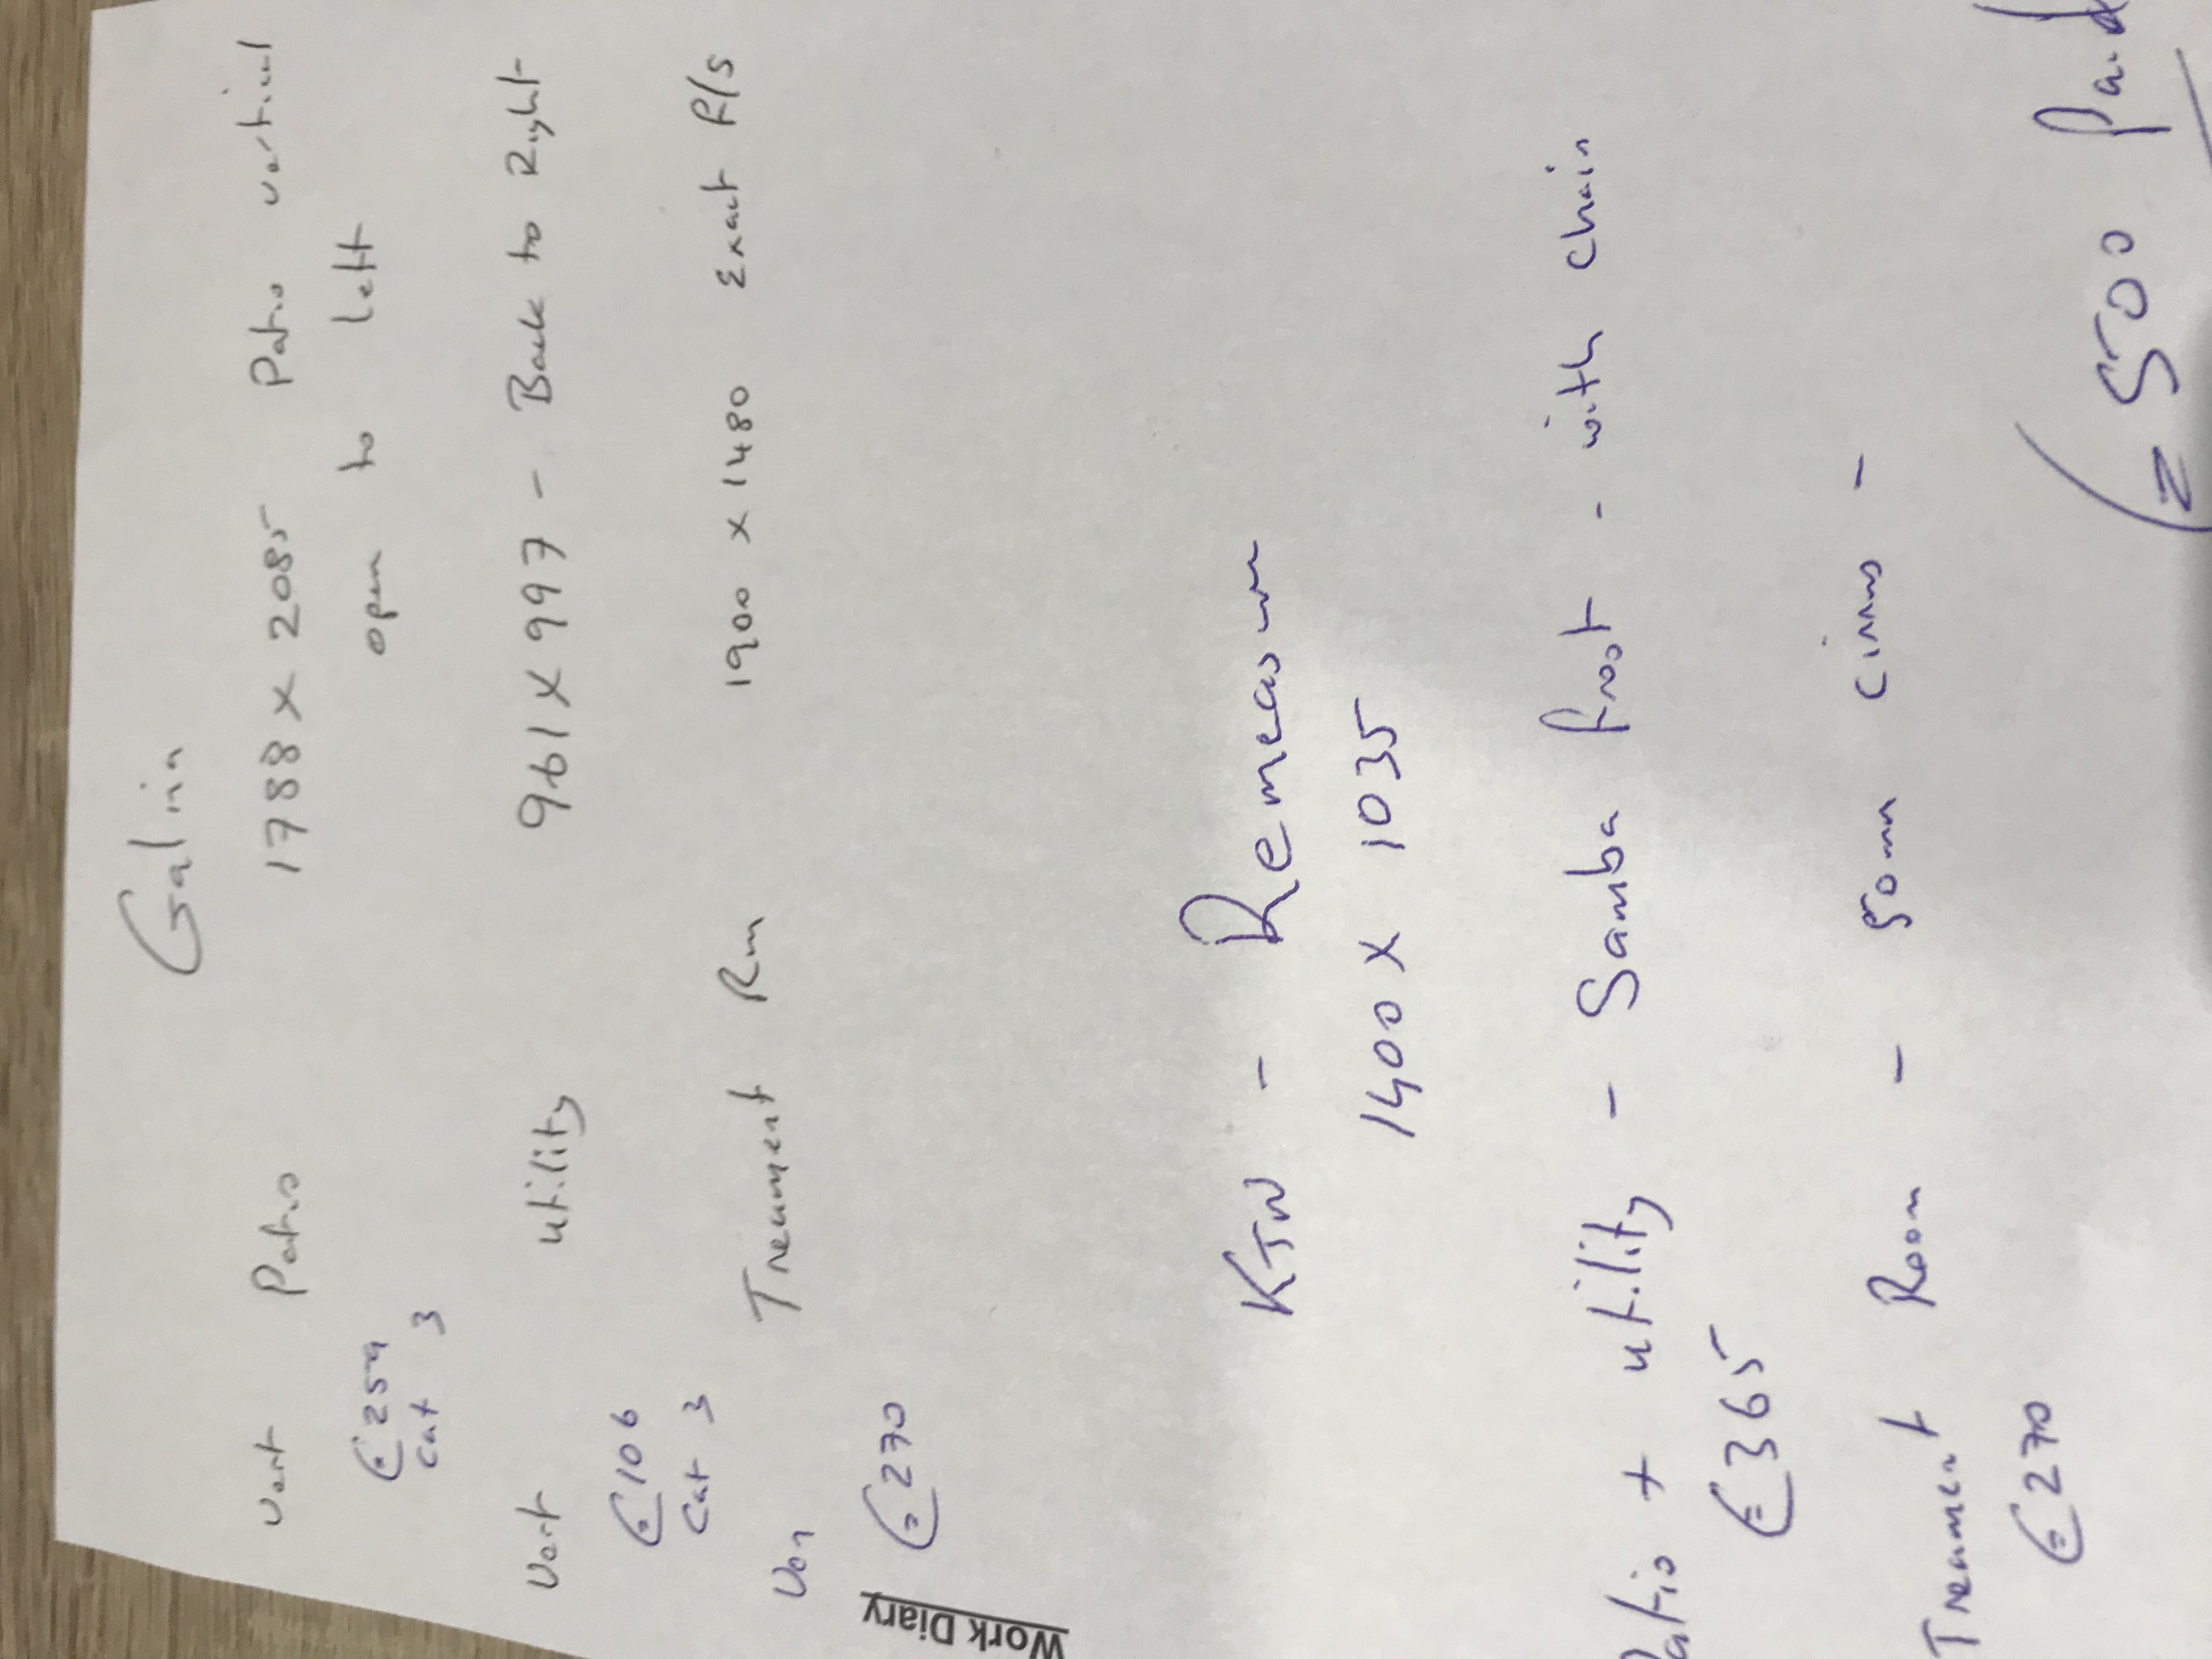 Galvin
Vert Patio 1788 x 2085 Patio vertical
open to left
€259
Cat 3
Vert utility 961 x 997 - Back to Right
€106
Cat 3
Ven Treament Rm 1900 x 1480 Exact R/s
€270
Work Diary
- Remeasure
1400 x 1035
Patio + utility - Samba frost - with chain
€365
Treament Room - 50mm cirrus -
€270
500 Paid